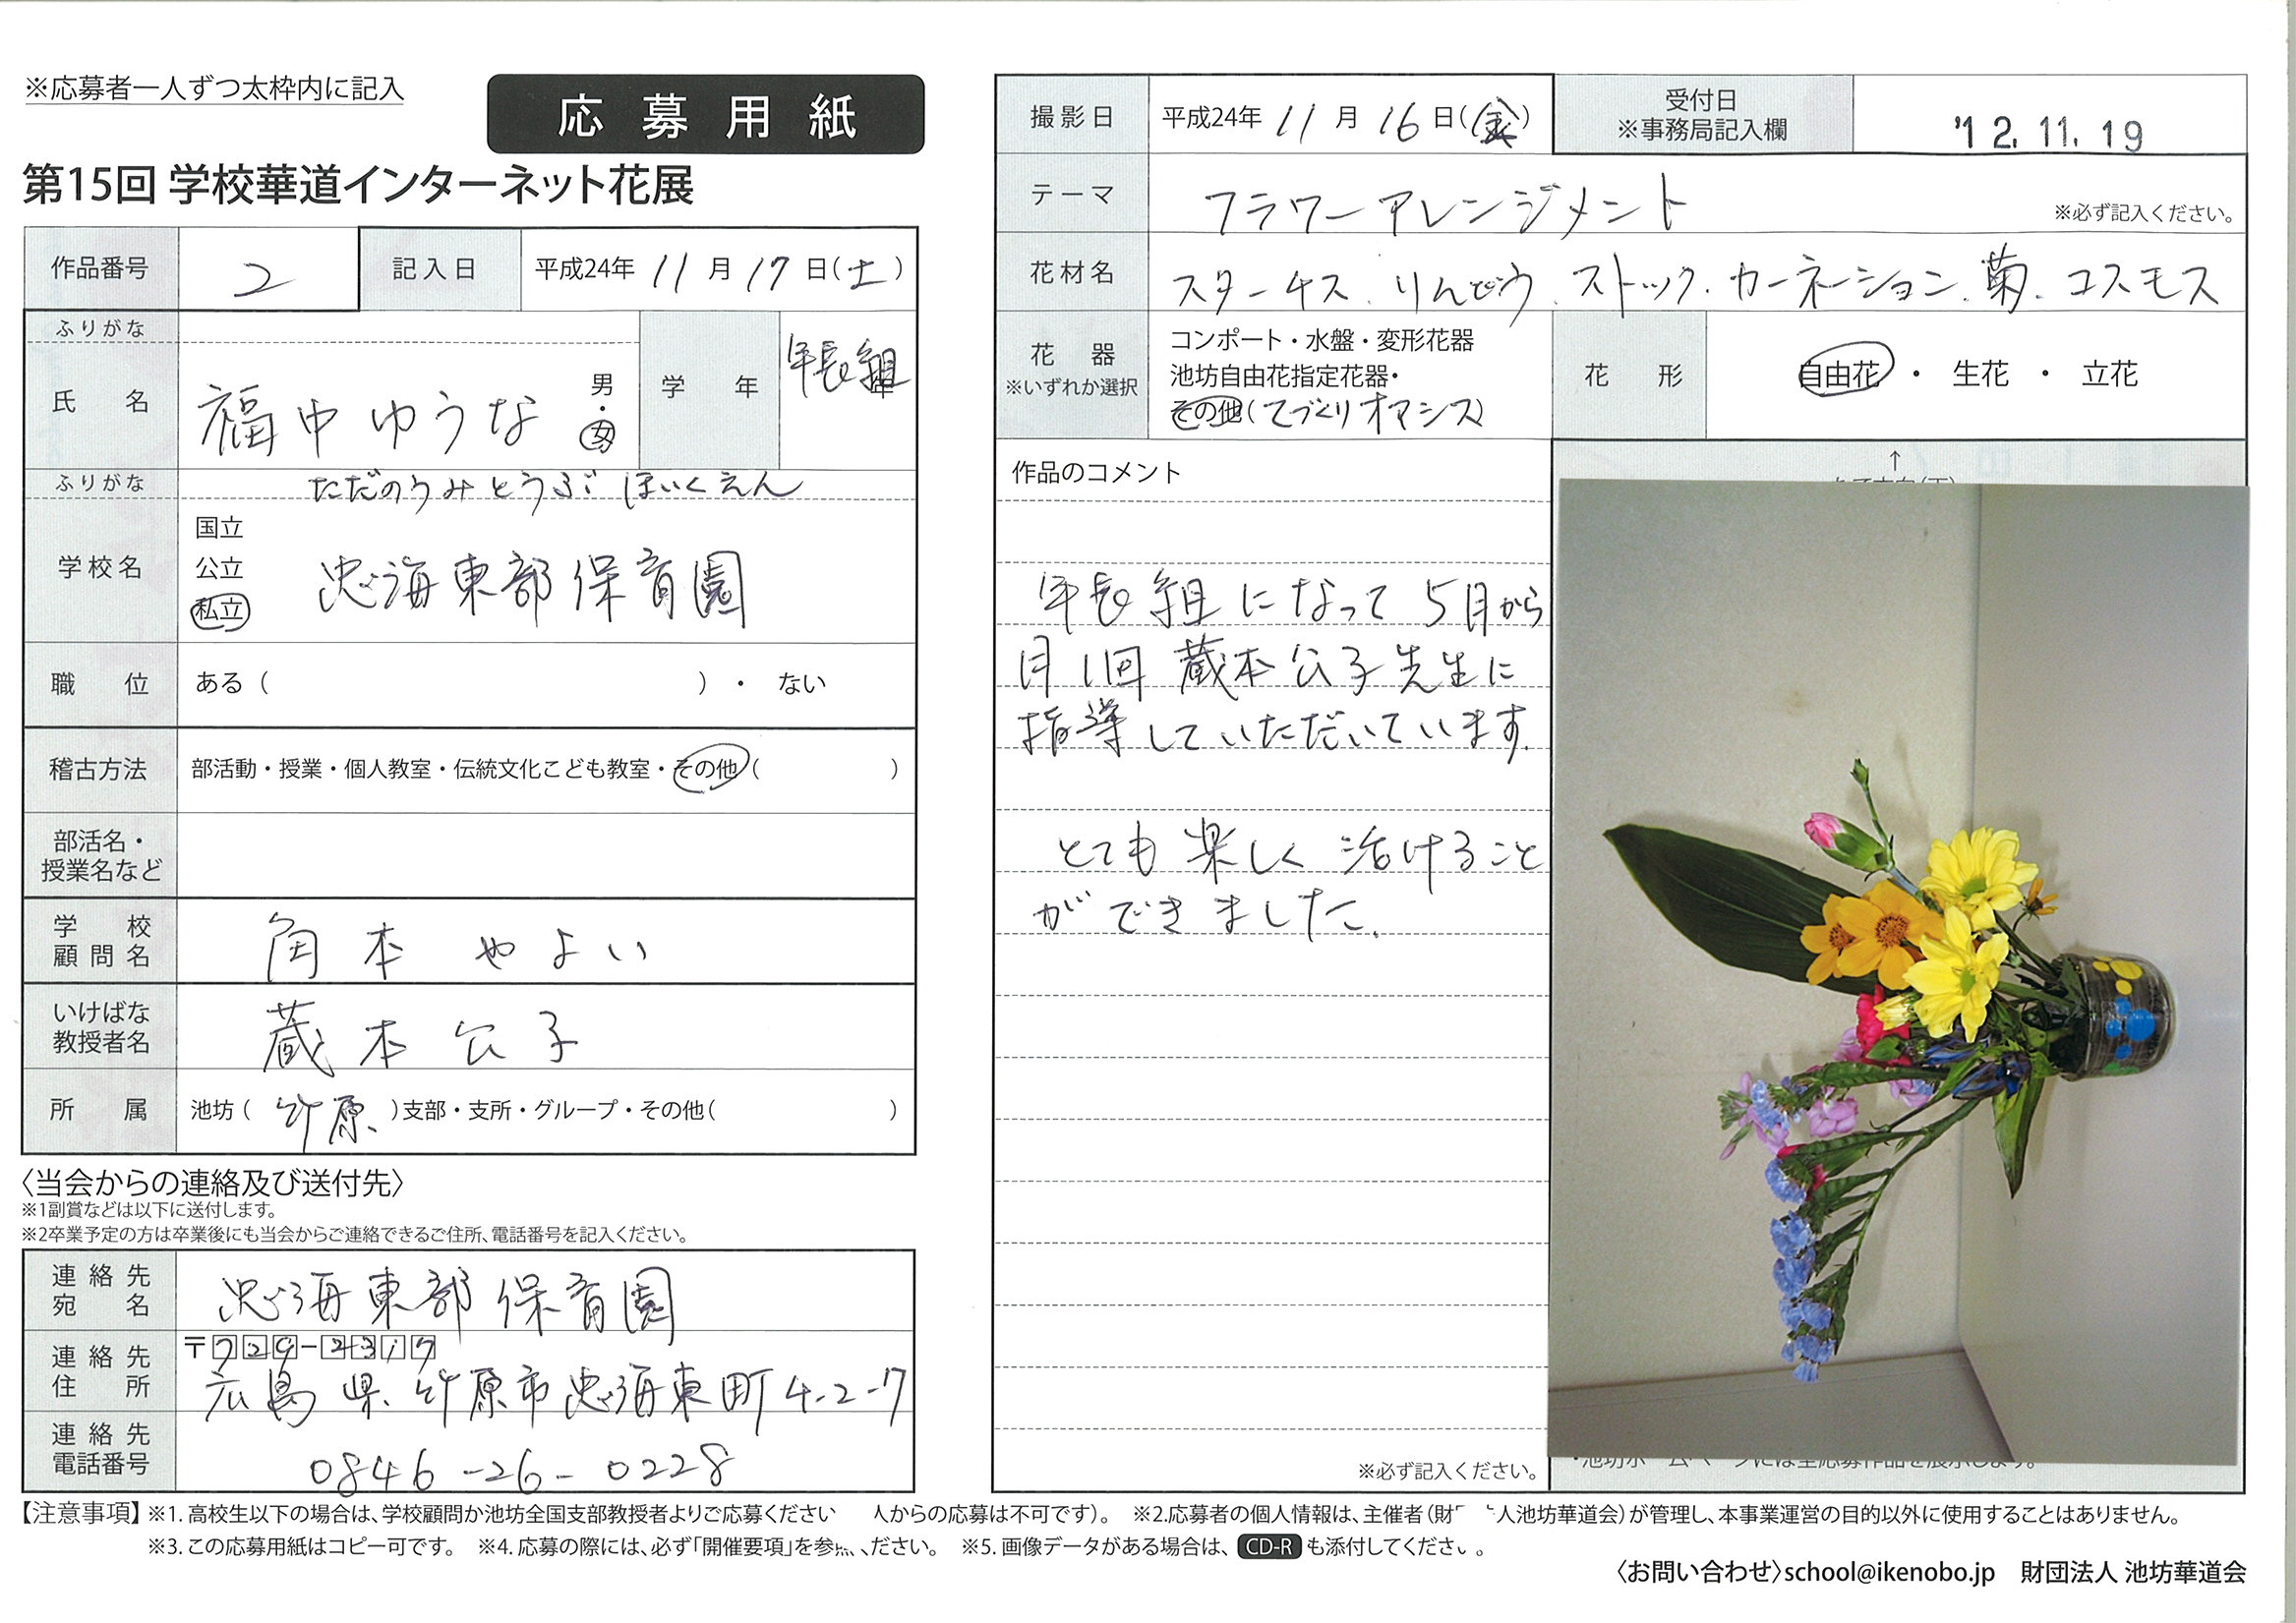 ※応募者一人ずつ太枠内に記入
応募用紙
第15回 学校華道インターネット花展
作品番号 2 記入日 平成24年 11月 17日(土)
ふりがな
氏名 福中ゆうな 男・女 学年 年長組
ふりがな ただのうみとうぶ ほいくえん
学校名 国立 公立 私立 忠海東部保育園
職位 ある( )・ ない
稽古方法 部活動・授業・個人教室・伝統文化こども教室・その他( )
部活名・授業名など
学校顧問名 角本 やよい
いけばな教授者名 蔵本 公子
所属 池坊(竹原)支部・支所・グループ・その他( )
〈当会からの連絡及び送付先〉
※1副賞などは以下に送付します。
※2卒業予定の方は卒業後にも当会からご連絡できるご住所、電話番号を記入ください。
連絡先宛名 忠海東部保育園
連絡先住所 〒729-2317
広島県竹原市忠海東町4-2-7
連絡先電話番号 0846-26-0228
撮影日 平成24年 11月 16日(金) 受付日 ※事務局記入欄 '12.11.19
テーマ フラワーアレンジメント ※必ず記入ください。
花材名 スターチス.りんどう.ストック.カーネーション.菊.コスモス
花器 ※いずれか選択 コンポート・水盤・変形花器
池坊自由花指定花器・
その他(てづくりオアシス)
花形 自由花・生花・立花
作品のコメント
↑
年長組になって5月から
月1回蔵本公子先生に
指導していただいています.
とても楽しく活けること
ができました.
※必ず記入ください。
【注意事項】※1. 高校生以下の場合は、学校顧問か池坊全国支部教授者よりご応募ください 人からの応募は不可です)。 ※2.応募者の個人情報は、主催者(財 人池坊華道会)が管理し、本事業運営の目的以外に使用することはありません。
※3. この応募用紙はコピー可です。 ※4. 応募の際には、必ず「開催要項」を参 ださい。 ※5. 画像データがある場合は、CD-Rも添付してくださ 。
〈お問い合わせ〉school@ikenobo.jp 財団法人 池坊華道会